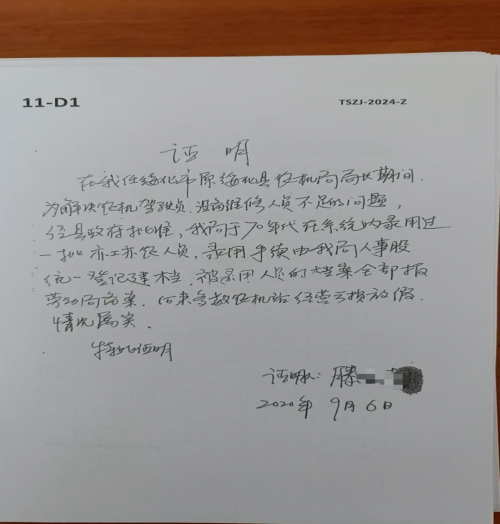 11-D1
TSZJ-2024-Z
证明
在我任绥化市原绥化县农机局局长期间.
为解决农机驾驶员、没有维修人员不足的问题,
经县政府批准,我局于70年代在系统内录用过
一批亦工亦农人员,录用手续由我局人事股
统一登记建档,被录用人员的档案全部报
劳动局备案.后来多数农机站经营亏损放假.
情况属实.
特此证明
证明人:滕
2020年9月6日